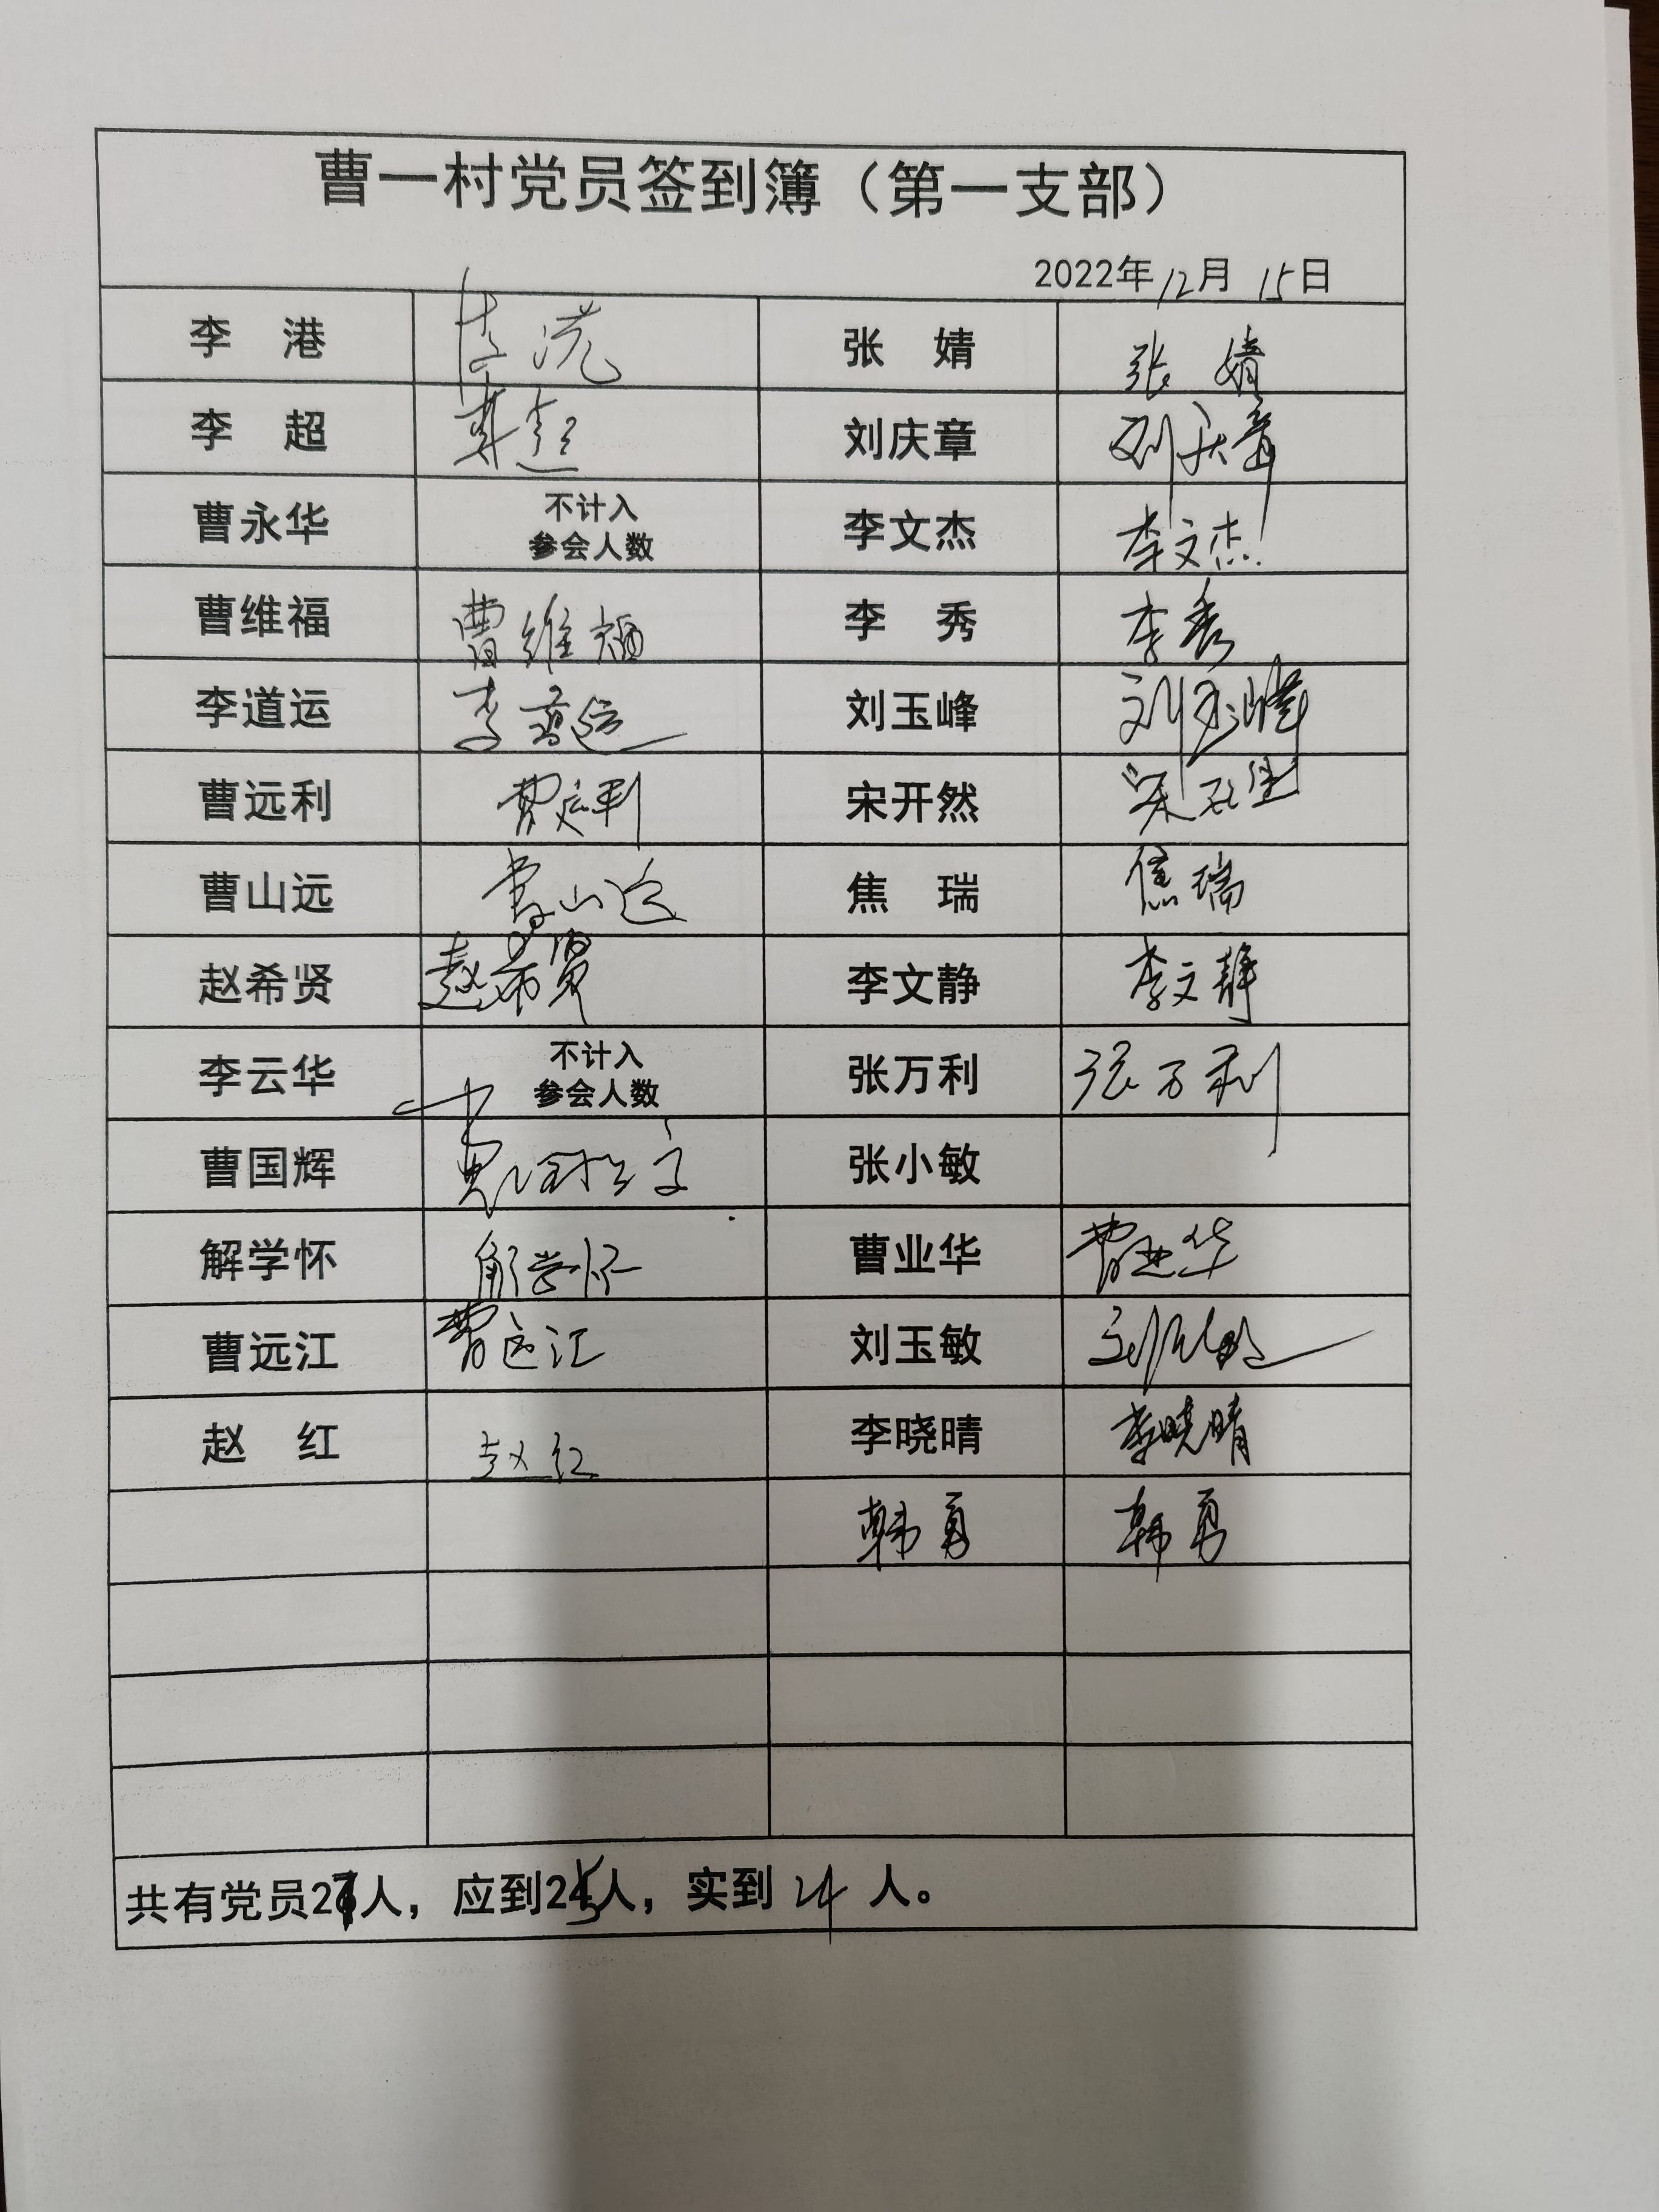 曹一村党员签到簿（第一支部）
2022年12月15日
李 港 李港 张 婧 张婧
李 超 李超 刘庆章 刘庆章
曹永华 不计入 李文杰 李文杰
参会人数
曹维福 曹维福 李 秀 李秀
李道运 李道运 刘玉峰 刘玉峰
曹远利 曹远利 宋开然 宋开然
曹山远 曹山远 焦 瑞 焦瑞
赵希贤 赵希贤 李文静 李文静
李云华 不计入 张万利 张万利
参会人数
曹国辉 张小敏
解学怀 解学怀 曹业华 曹业华
曹远江 曹远江 刘玉敏 刘玉敏
赵 红 赵红 李晓晴 李晓晴
韩勇 韩勇
共有党员27人，应到25人，实到24人。